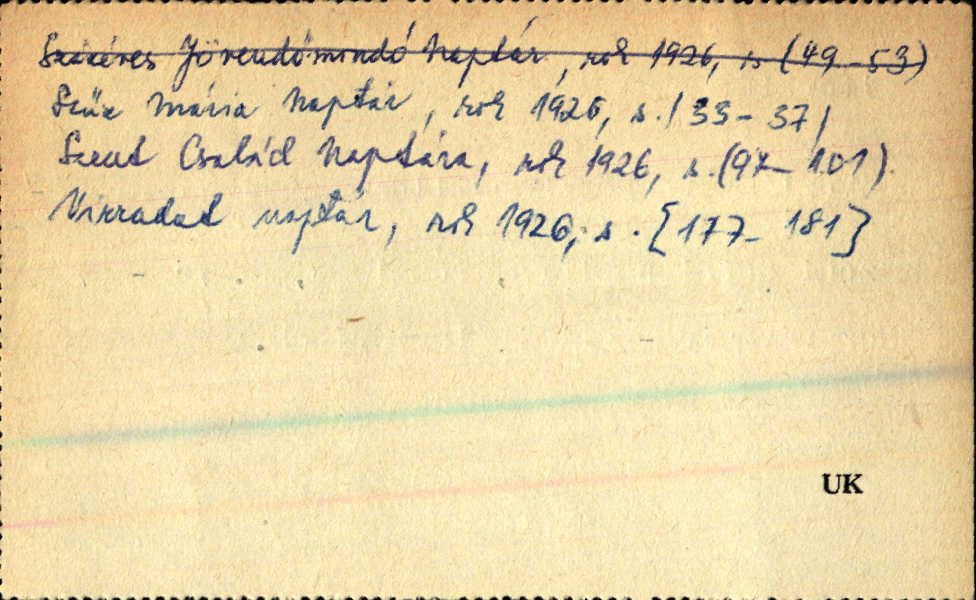 Százéves Jövendőmondó Naptár, rok 1926, s (49-53)
Szűz Mária Naptár, rok 1926, s. (33-37)
Szent Család Naptára, rok 1926, s. (97-101).
Virradat naptár, rok 1926, s. [177-181]
UK